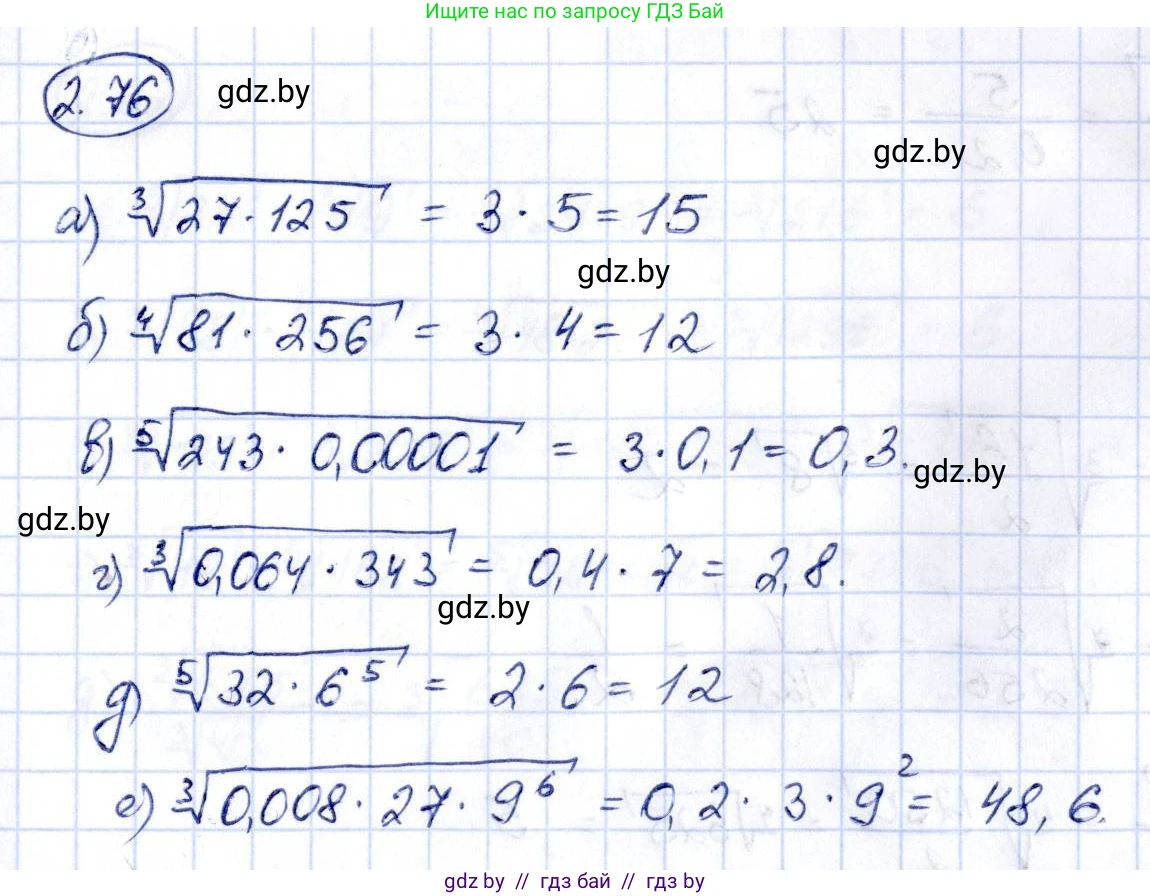 Ищите нас по запросу ГДЗ Бай
2.76 gdz.by
gdz.by
а) ∛(27·125) = 3·5=15
gdz.by
б) ∜(81·256) = 3·4=12
в) ⁵√(243·0,00001) = 3·0,1=0,3.
gdz.by
gdz.by
г) ∛(0,064·343) = 0,4·7=2,8.
gdz.by
д) ⁵√(32·6⁵) = 2·6=12
е) ∛(0,008·27·9⁶) = 0,2·3·9²= 48,6.
gdz by // гдз бай // гдз by